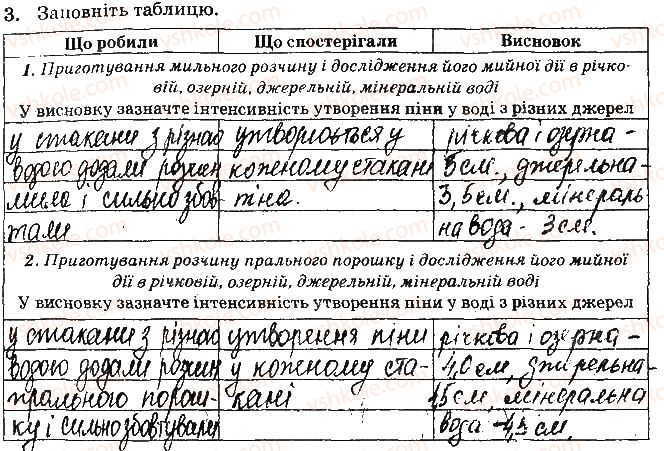 3. Заповніть таблицю.
Що робили Що спостерігали Висновок
1. Приготування мильного розчину і дослідження його мийної дії в річко-
вій, озерній, джерельній, мінеральній воді
У висновку зазначте інтенсивність утворення піни у воді з різних джерел
у стакани з різною утворюється у річкова і озерна -
водою додали розчин кожному стакані 5 см., джерельна -
мила і сильно збов піна. 3,5 см., мінераль
тали на вода - 3 см.
2. Приготування розчину прального порошку і дослідження його мийної
дії в річковій, озерній, джерельній, мінеральній воді
У висновку зазначте інтенсивність утворення піни у воді з різних джерел
у стакани з різною утворення піни річкова і озерна -
водою додали розчин у кожному ста- 4,0 см, джерельна -
прального порош- кані 4,5 см, мінеральна
ку і сильно збовтували вода - 4,3 см.